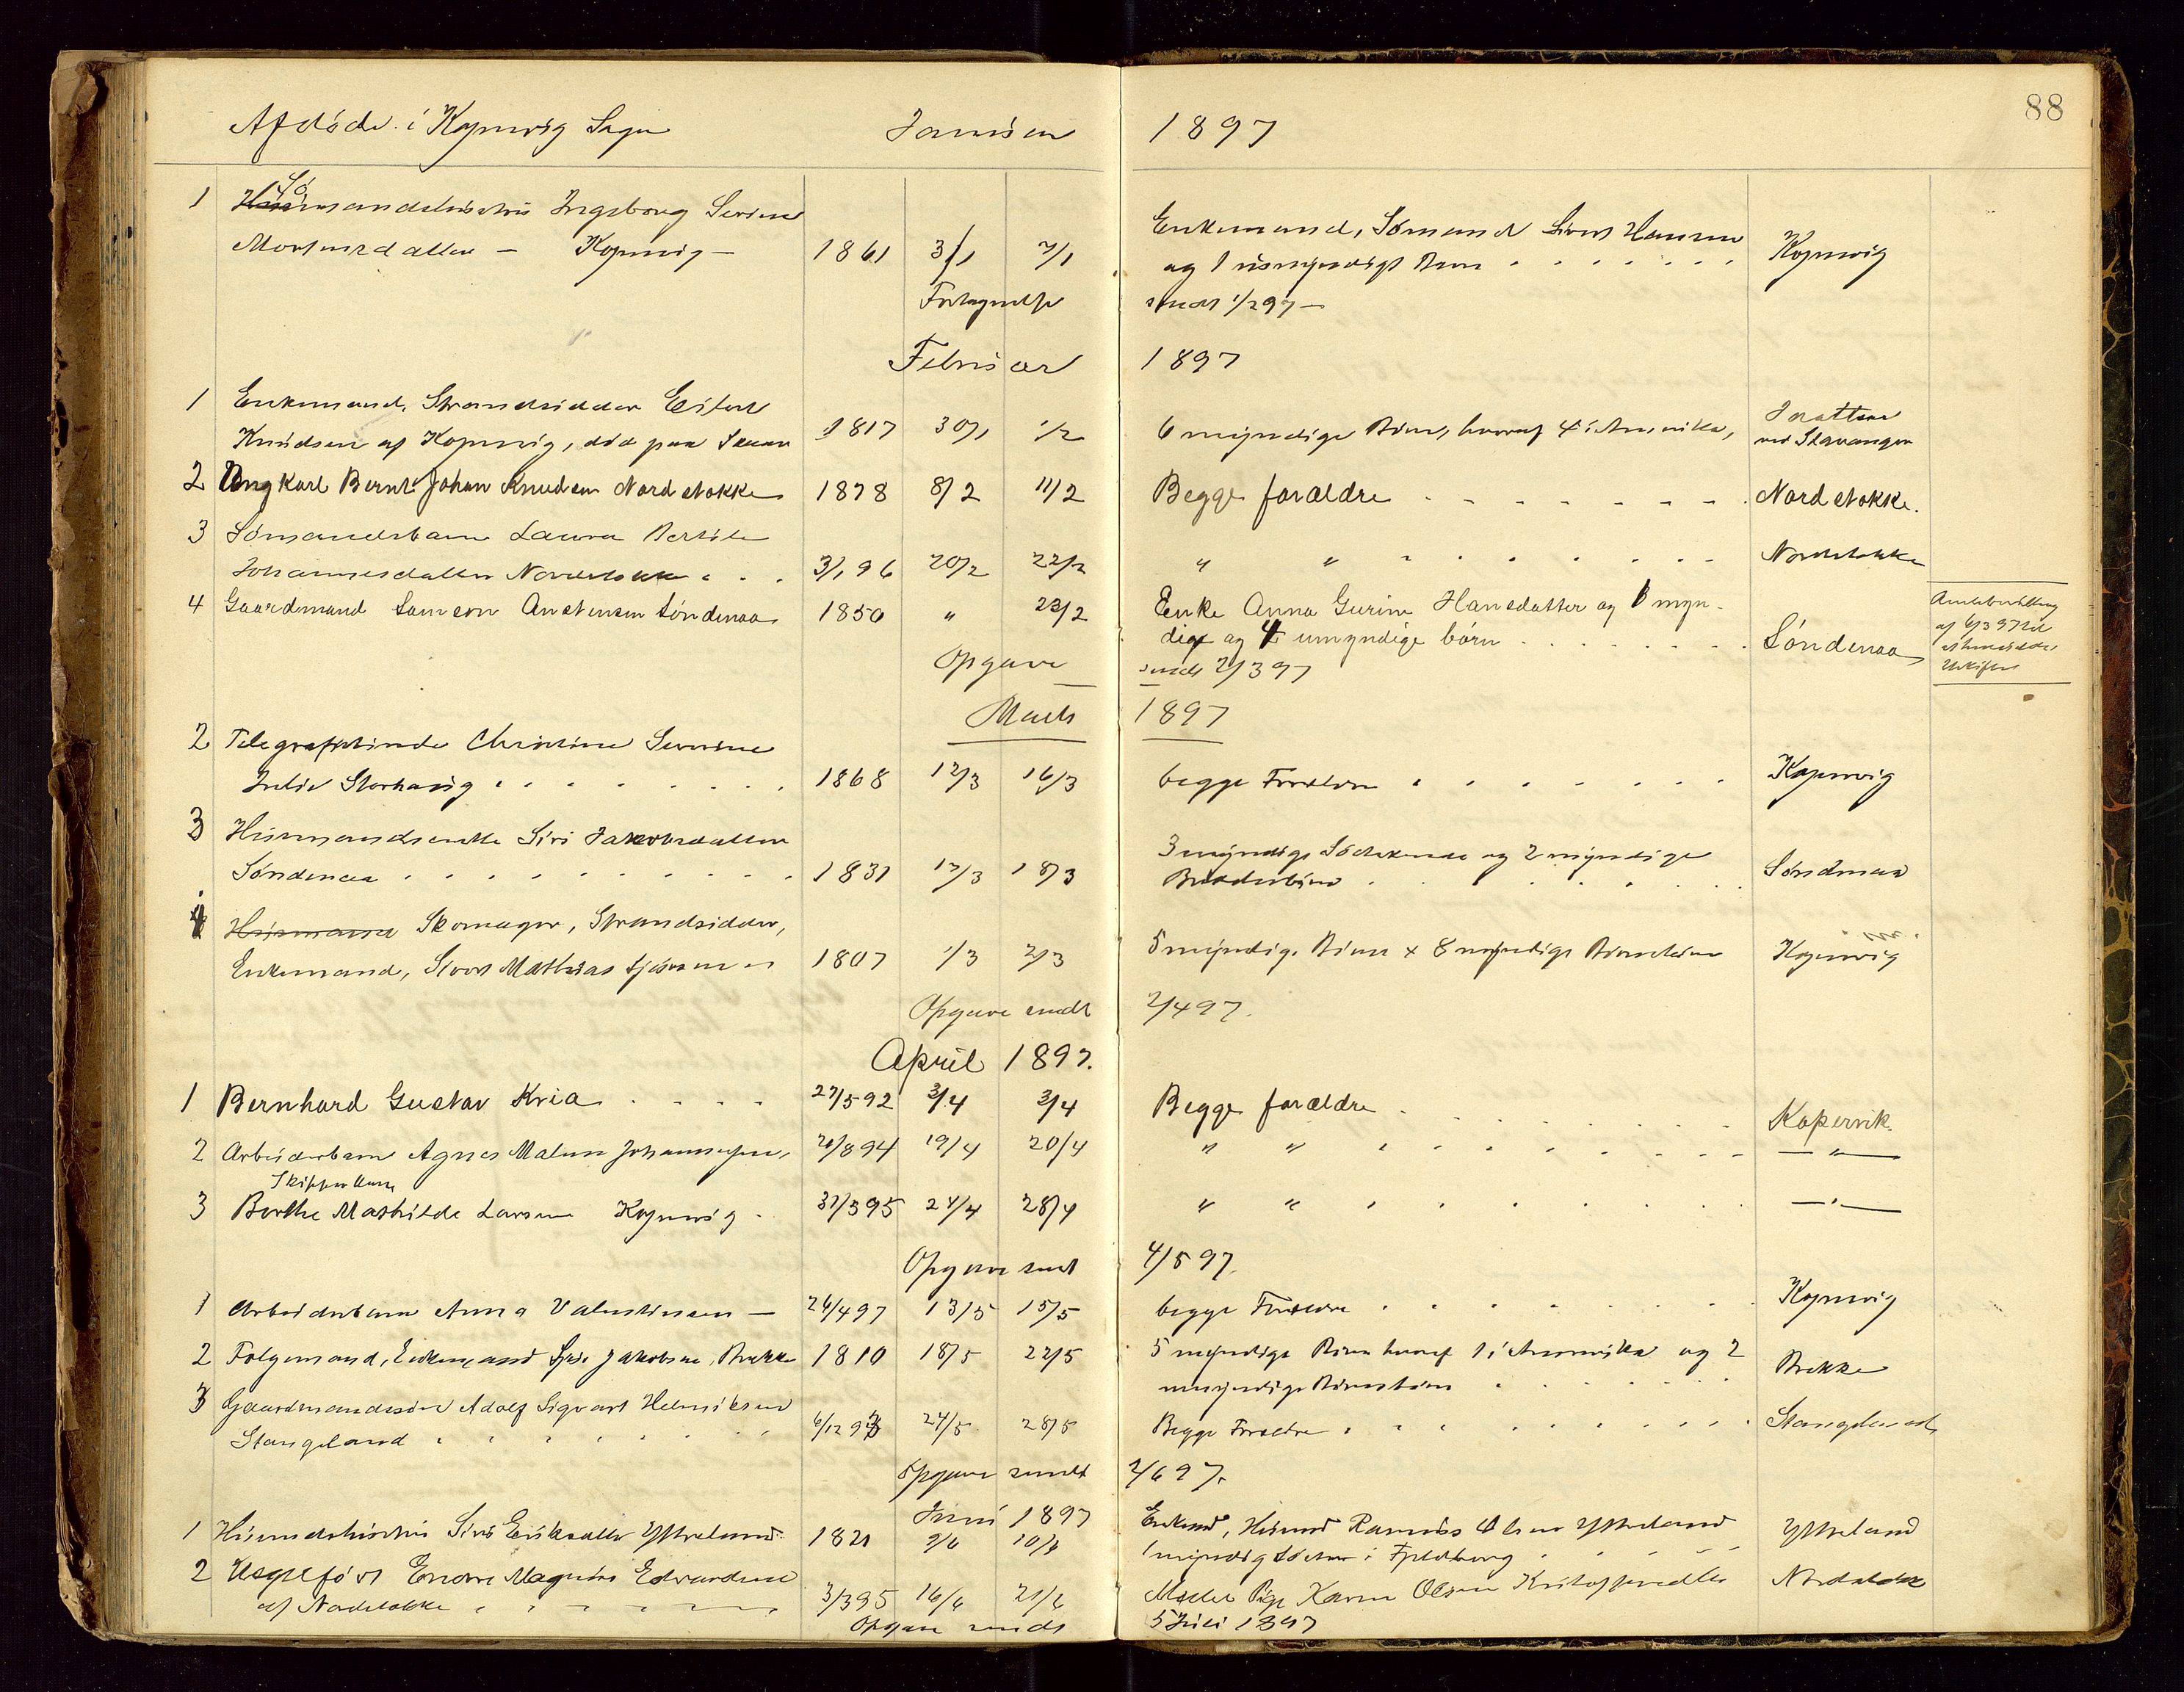 88
Afdöde i Kopervig Sogn Januar 1897
1 Sømandshustru Ingeborg Serine
Mortensdatter — Kopervig — 1861 3/1 7/1 Enkemand, Sömand Sivert Hansen Kopervig
og 1 umyndigt Barn
Fortegnelse sendt 1/2 97 —
Februar 1897
1 Enkemand, Strandsidder Eilert
Knudsen af Kopervig, död paa 1817 30/1 1/2 6 myndige Börn, hvoraf 4 i Amerika, Jaatten
ved Stavanger
2 Ungkarl Bernt Johan Knudsen Nordstokke 1878 8/2 11/2 Begge forældre Nordstokke.
3 Sömandsbarn Laura Bertile
Johannesdatter Nordstokke 3/1 96 20/2 22/2 " " Nordstokke
4 Gaardmand Samson Anstensen Söndenaa 1850 " 23/2 Enke Anna Gurine Hansdatter og 1 myn-
dig og 4 umyndige börn Söndenaa
af 6/3 97 til
Opgave sendt 2/3 97
Marts 1897
2 Telegrafistinde Christine Severine
Julie Storhaug 1868 12/3 16/3 begge Forældre Kopervig
3 Husmandsenke Siri Jakobsdatter
Söndenaa 1831 12/3 18/3 3 myndige Södskende og 2 myndige
Broderbörn Söndenaa
4 Husmand Skomager, Strandsidder,
Enkemand, Sivert Mathias 1807 1/3 2/3 5 myndige Börn + 8 myndige Börnebörn Kopervig
Opgave sendt 2/4 97.
April 1897.
1 Bernhard Gustav Kria 27/5 92 3/4 3/4 Begge forældre Kopervik
2 Arbeiderbarn Agnes Maline Johannesen, 20/8 94 19/4 20/4 " " — " —
Skipperbarn
3 Berthe Mathilde Larsen Kopervig 31/3 95 24/4 28/4 " " — " —
Opgave sendt 4/5 97.
1 Arbeiderbarn Anna Valentinsen — 26/4 97 13/5 15/5 begge Forældre Kopervig
2 Folgemand, Enkemand Jakobsen, Brekke 1810 18/5 22/5 5 myndige Börn hvoraf 1 i Amerika og 2
umyndige Börnebörn Brekke
3 Gaardmandssön Adolf Sigvart Helmiksen
Stangeland 6/12 93 24/5 28/5 Begge Forældre Stangeland
Opgave sendt 2/6 97.
Juni 1897
1 Husmandshustru Siri Eriksdatter Ytreland 1821 9/6 10/6 Enkemd, Husmd Rasmus Olsen Ytreland Ytreland
1 myndig Datter i
2 Uegtefödt Endre Magnus Edvardsen
af Nordstokke 3/3 95 16/6 21/6 Moder Pige Karen Olsen Kristoffersdtr Nordstokke
Opgave sendt 5 Juli 1897